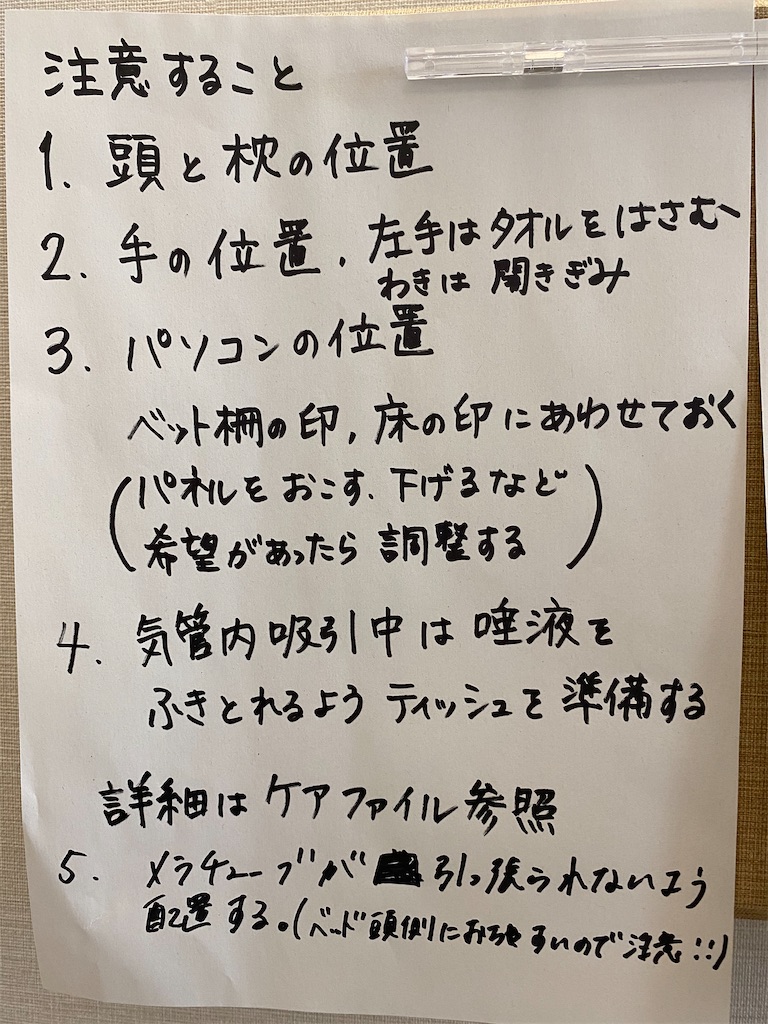 注意すること
1. 頭と枕の位置
2. 手の位置. 左手はタオルをはさむ
わきは 開きぎみ
3. パソコンの位置
ベット柵の印, 床の印にあわせておく
(パネルを おこす. 下げるなど
希望があったら 調整する)
4. 気管内吸引中は 唾液を
ふきとれるよう ティッシュを 準備する
詳細は ケアファイル参照
5. メラチューブが 引っ張られないよう
配置する。(ベッド頭側におちやすいので 注意!!)